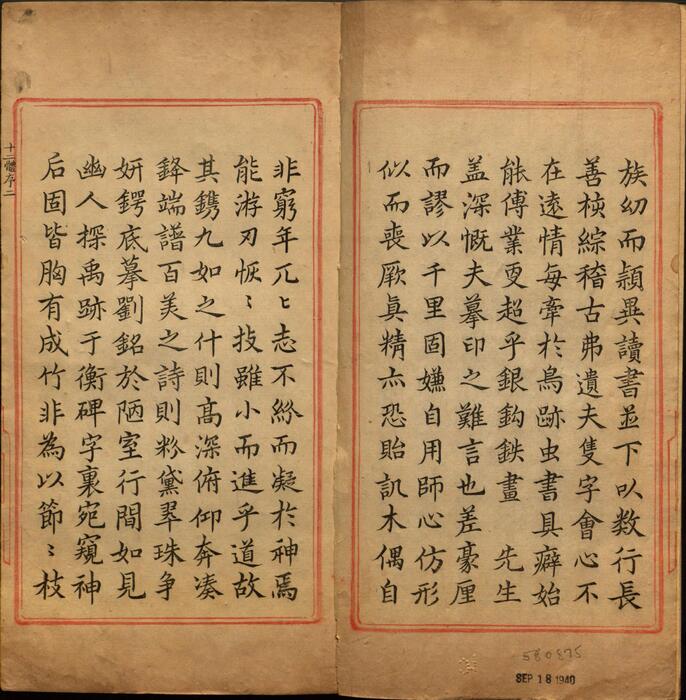 族幼而頴異讀書並下㕥数行長
善楨綜稽古弗遺夫隻字會心不
在遠情每牽於鳥跡虫書具癖始
能傳業更超乎銀鈎鉄畫 先生
盖深慨夫摹印之難言也差豪厘
而謬以千里固嫌自用師心仿形
似而喪厥真精亦恐貽訊木偶自
非窮年兀〻志不紛而凝於神焉
能游刃恢〻技雖小而進乎道故
其鐫九如之什則高深俯仰奔湊
鋒端譜百美之詩則粉黛翠珠争
妍鍔底摹劉銘於陋室行間如見
幽人探禹跡于衡碑字裏宛窺神
后固皆胸有成竹非為以節〻枝
十二體存二
580875
SEP 18 1940